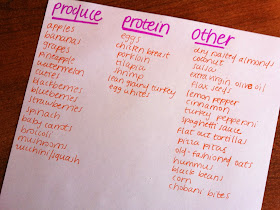 produce
apples
bananas
grapes
pineapple
watermelon
cuties
blackberries
blueberries
strawberries
spinach
baby carrots
broccoli
mushrooms
zucchini/squash
protein
eggs
chicken breast
pork loin
tilapia
shrimp
lean ground turkey
egg whites
other
dry roasted almonds
coconut
salsa
extra virgin olive oil
flax seeds
lemon pepper
cinnamon
turkey pepperoni
spaghetti sauce
flat out tortillas
pizza pitas
old-fashioned oats
hummus
black beans
corn
chobani bites